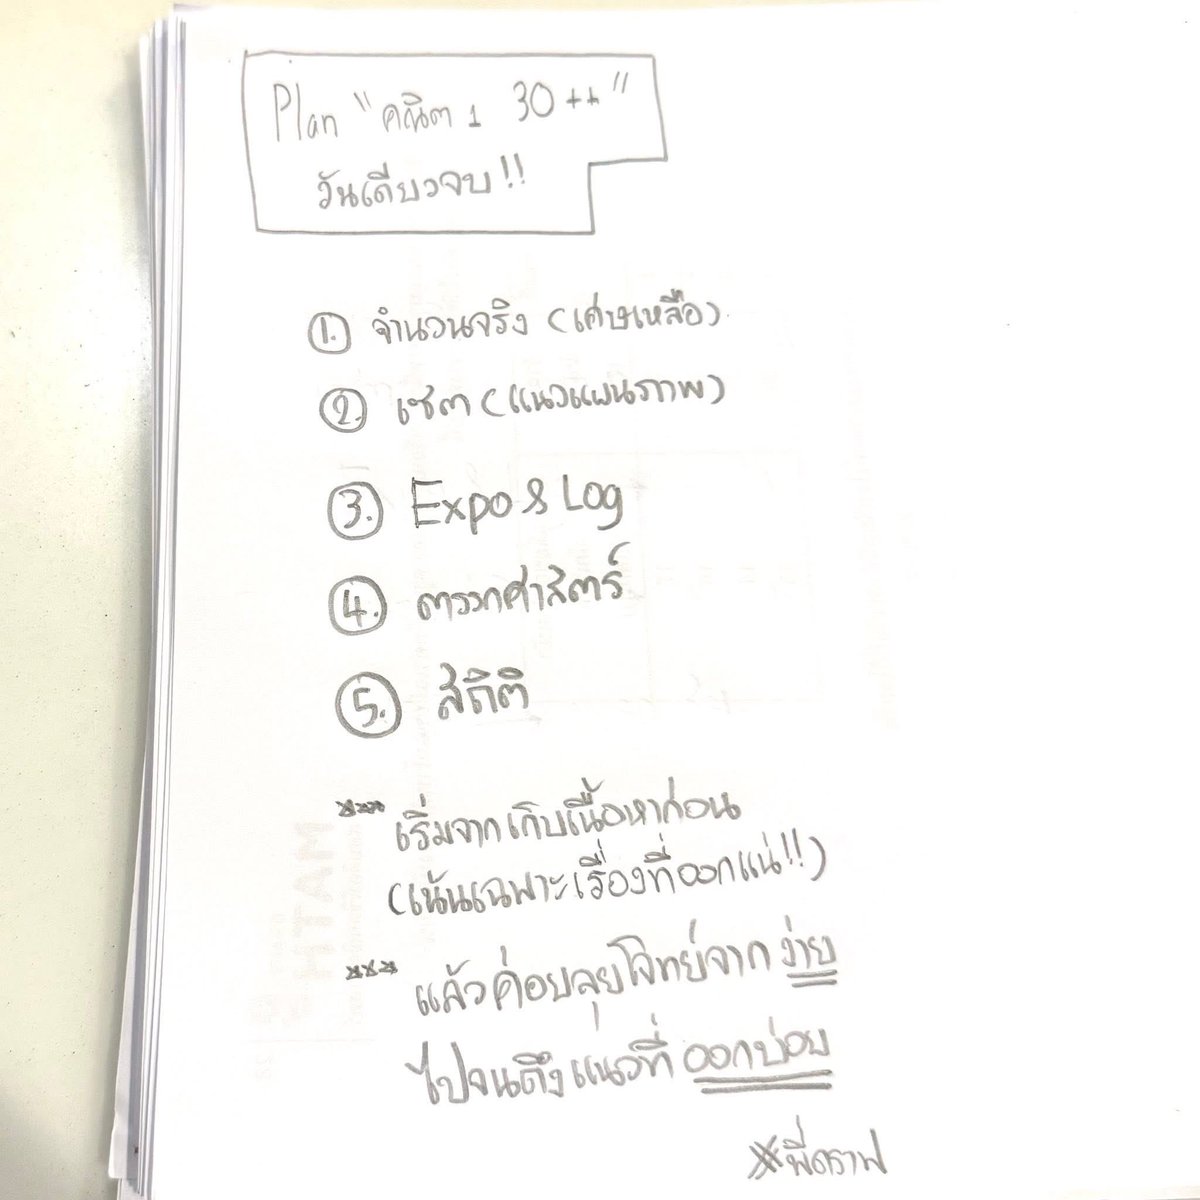 Plan "คณิต 1 30++"
วันเดียวจบ!!
1. จำนวนจริง (เศษเหลือ)
2. เซต (แนวแผนภาพ)
3. Expo & Log
4. ตรรกศาสตร์
5. สถิติ
*** เริ่มจากเก็บเนื้อหาก่อน
(เน้นเฉพาะเรื่องที่ออกแน่!!)
*** แล้วค่อยลุยโจทย์จาก ง่าย
ไปจนถึงแนวที่ ออกบ่อย
*พี่ดราฟ